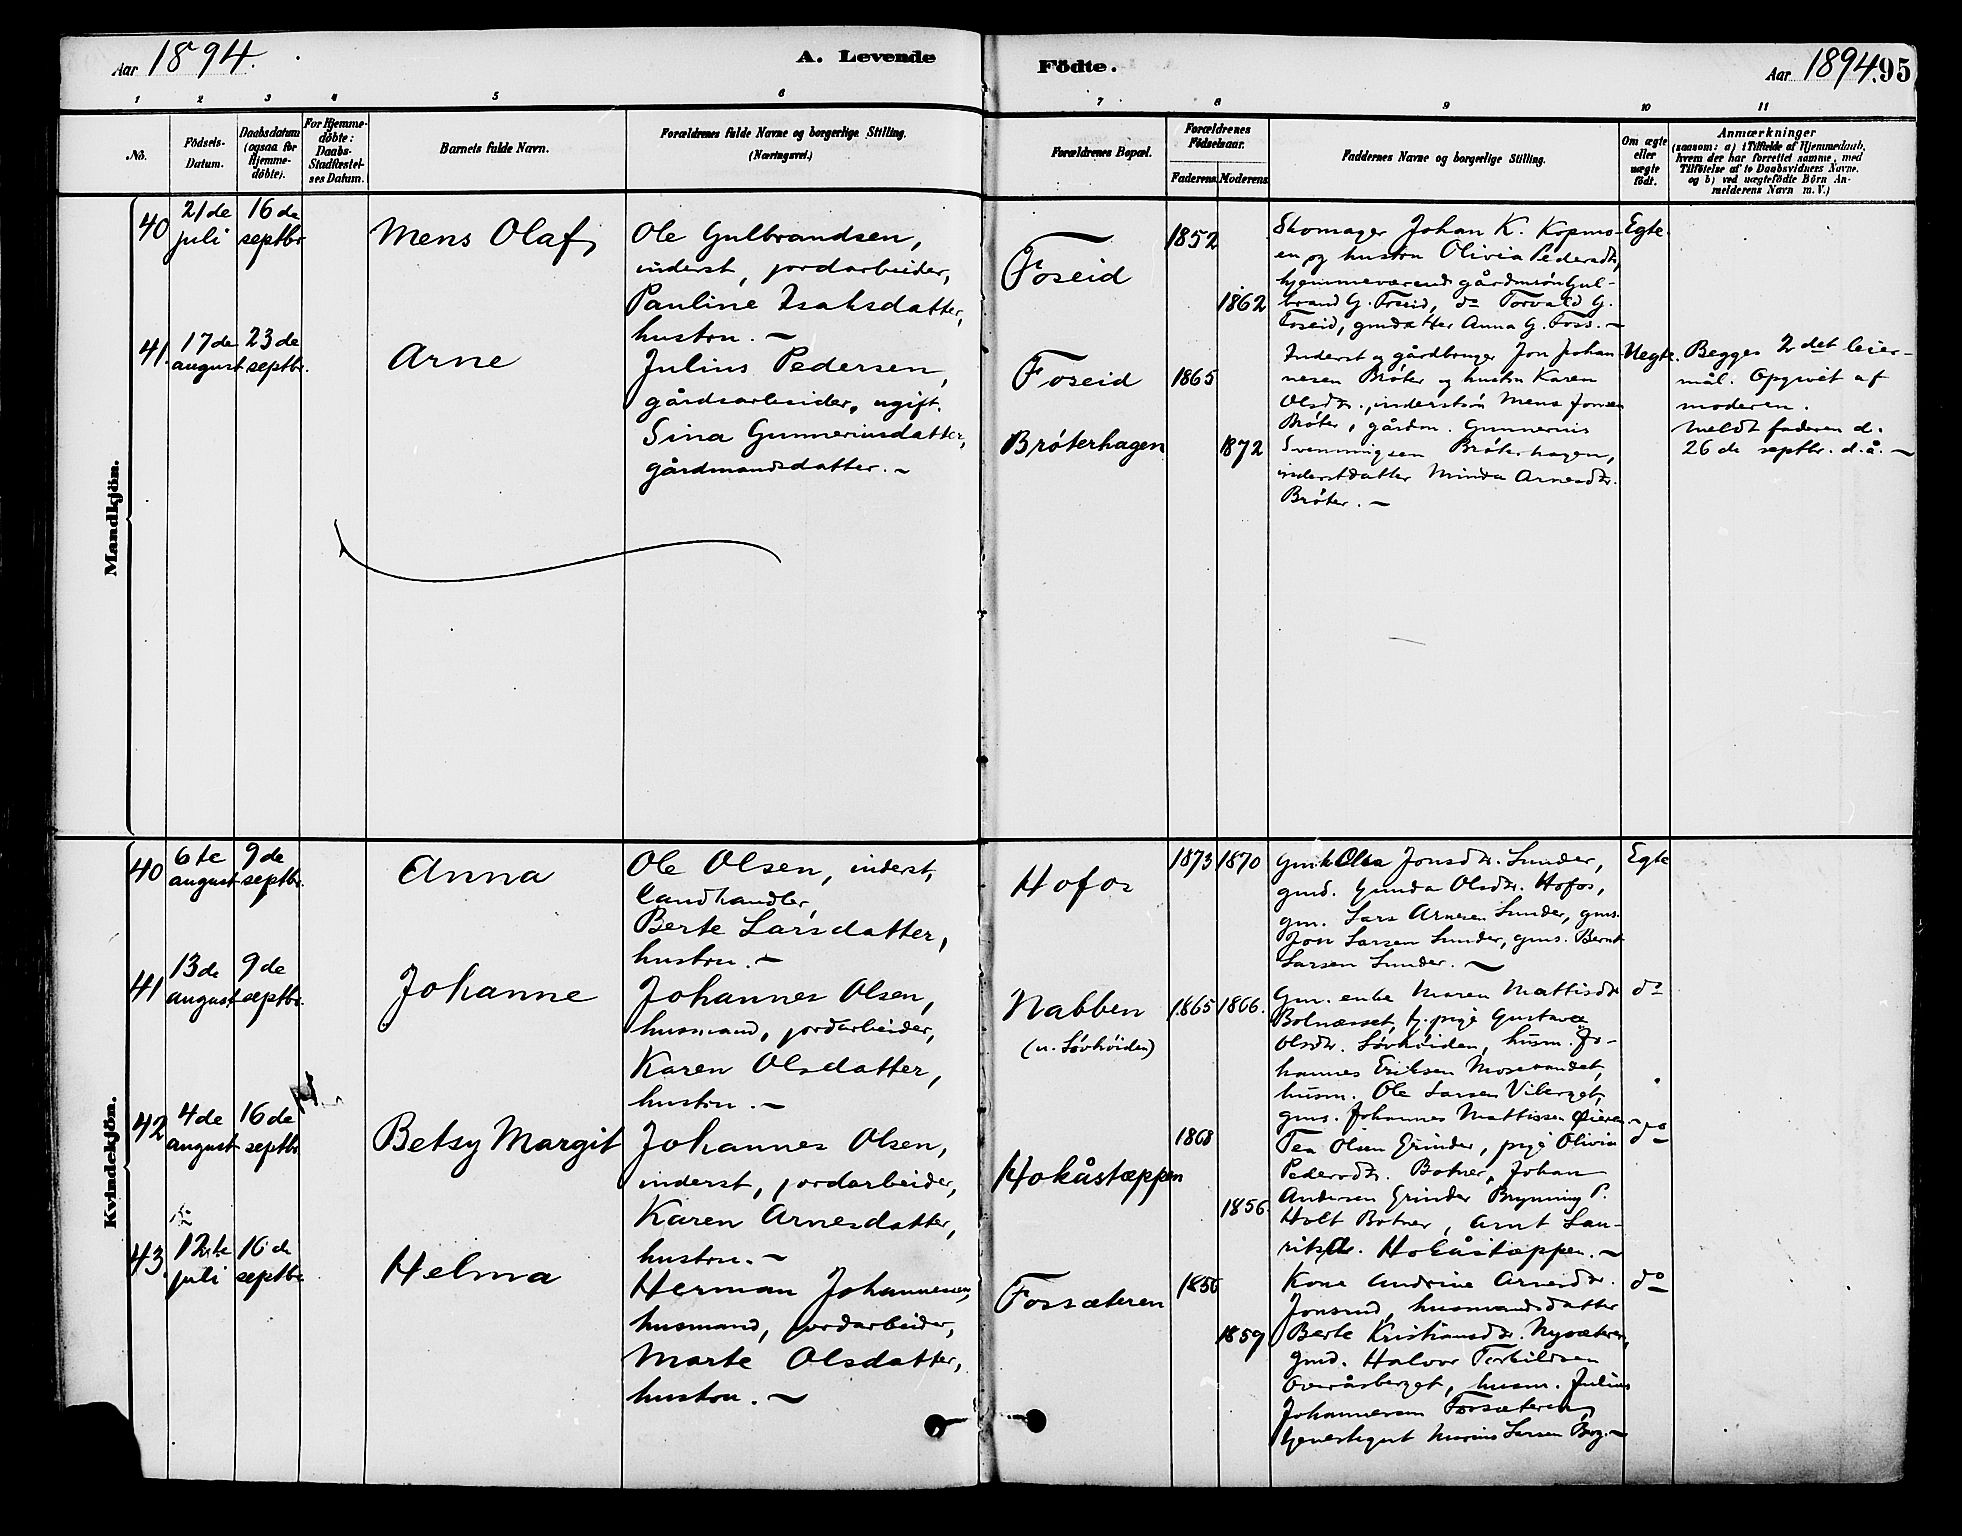 Aar 1894.
A. Levende
Födte.
Aar 1894. 95
1 2 3 4 5 6 7 8 9 10 11
No.
Födsels-
Datum.
Daabsdatum
(ogsaa for
Hjemme-
döbte).
For Hjemme-
döbte:
Daabs-
Stadfæstel-
ses Datum.
Barnets fulde Navn.
Forældrenes fulde Navne og borgerlige Stilling.
(Næringsvei.)
Forældrenes Bopæl.
Forældrenes
Födselsaar.
Faderens Moderens
Faddernes Navne og borgerlige Stilling.
Om ægte
eller
uægte
født.
Anmærkninger
(saasom: a) i Tilfælde af Hjemmedaab,
hvem der har forrettet samme, med
Tilföielse af to Daabsvidners Navne.
og b) ved uægtefödte Börn An-
melderens Navn m. V.)
Mandkjön.
40
21de
juli
16de
septbr
Mens Olaf
Ole Gulbrandsen,
inderst, jordarbeider,
Pauline Isaksdatter,
hustru. —
Foseid
1852
1862
Skomager Johan K. Kopmo-
en og hustru Olivia Pedersdtr,
hjemmeværende gårdmsøn Gul-
brand G. Foseid, do Torvald G.
Foseid, gmdatter Anna G. Foss. —
Egte.
41.
17de
august
23de
septbr.
Arne
Julius Pedersen,
gårdsarbeider, ugift.
Sina Gunneriusdatter,
gårdmandsdatter. —
Foseid
Brøterhagen
1865
1872
Inderst og gårdbruger Jon Johan-
nesen Brøter og hustru Karen
Olsdtr., inderstsøn Mens Jonsen
Brøter, gårdm. Gunnerius
Svenningsen Brøterhagen,
inderstdatter Minda Arnesdtr.
Brøter. —
Uegte.
Begges 2det leier-
mål. Opgivet af
moderen.
Meldt faderen d.
26de septbr. d. å. —
Kvindekjön.
40
6te
august
9de
septbr.
Anna
Ole Olsen, inderst,
landhandler,
Berte Larsdatter,
hustru. —
Hofos
1873 1870
Olea Jonsdtr. Sunder,
gmd. Gunda Olsdtr. Hofos,
gm. Lars Arnesen Sunder, gms.
Jon Larsen Sunder, gms. Bernt
Larsen Sunder. —
Egte
41
13de
august
9de
septbr.
Johanne
Johannes Olsen,
husmand, jordarbeider,
Karen Olsdatter,
hustru. —
Nabben
(u. Løvhöiden)
1865 1866.
Gm. enke Maren Mattisdtr
Bolnæsset, tj. pige Gustava
Olsdtr. Løvhöiden, husm. Jo-
hannes Eriksen Mosevandet,
husm. Ole Larsen Viberget,
gms. Johannes Mattissen Øieren —
do
42
4de
august
16de
septbr
Betsy Margit
Johannes Olsen,
inderst, jordarbeider,
Karen Arnesdatter,
hustru. —
Hokåstæppen
1868
1856.
Tea Olsen Grinder, pige Olivia
Pedersdtr. Botner, Johan
Andersen Grinder Brynning P.
Holt Botner, Arnt Lau-
Hokåstæppen. —
do
43.
12te
juli
16de
septbr
Helma
Herman Johannesen,
husmand, jordarbeider,
Marte Olsdatter,
hustru. —
Fossæteren
1856
1859
Kone Andrine Arnesdtr.
Jonsrud, husmandsdatter
Berte Kristiansdtr. Nysæteren,
gmd. Halvor Torkildsen
Overåsberget, husm. Julius
Johannesen Fossæteren,
Marius Larsen Berg. —
do